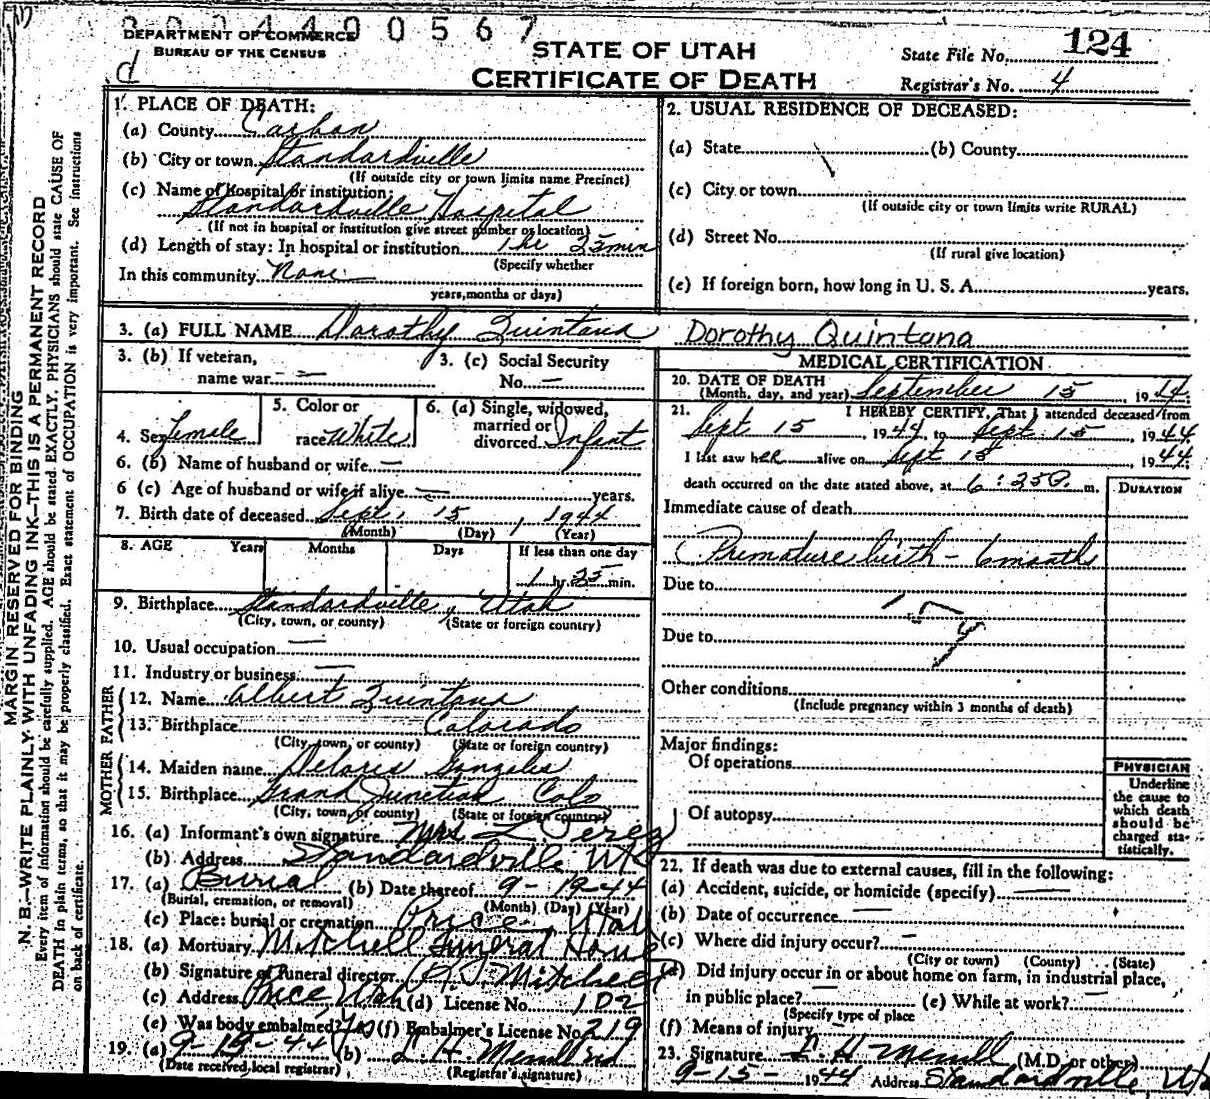 2004400567
DEPARTMENT OF COMMERCE
BUREAU OF THE CENSUS
d
STATE OF UTAH
CERTIFICATE OF DEATH
State File No. 124
Registrar's No. 4
MARGIN RESERVED FOR BINDING
N. B.—WRITE PLAINLY WITH UNFADING INK—THIS IS A PERMANENT RECORD
Every item of information should be carefully supplied. AGE should be stated EXACTLY. PHYSICIANS should state CAUSE OF
DEATH in plain terms, so that it may be properly classified. Exact statement of OCCUPATION is very important. See instructions
on back of certificate.
1. PLACE OF DEATH:
(a) County Carbon
(b) City or town Standardville
(If outside city or town limits name Precinct)
(c) Name of hospital or institution:
Standardville Hospital
(If not in hospital or institution give street number or location)
(d) Length of stay: In hospital or institution 1 hr 25 min
(Specify whether
In this community None
years, months or days)
2. USUAL RESIDENCE OF DECEASED:
(a) State (b) County
(c) City or town
(If outside city or town limits write RURAL)
(d) Street No.
(If rural give location)
(e) If foreign born, how long in U. S. A. years.
3. (a) FULL NAME Dorothy Quintana Dorothy Quintana
3. (b) If veteran,
name war —
3. (c) Social Security
No. —
4. Sex Female
5. Color or
race White
6. (a) Single, widowed,
married or
divorced Infant
6. (b) Name of husband or wife —
6 (c) Age of husband or wife if alive — years.
7. Birth date of deceased Sept. 15, 1944
(Month) (Day) (Year)
8. AGE Years Months Days If less than one day
1 hr. 25 min.
9. Birthplace Standardville, Utah
(City, town, or county) (State or foreign country)
10. Usual occupation —
11. Industry or business —
FATHER
12. Name Albert Quintana
13. Birthplace Colorado
(City, town, or county) (State or foreign country)
MOTHER
14. Maiden name Delores Gonzales
15. Birthplace Grand Junction Colo
(City, town, or county) (State or foreign country)
16. (a) Informant's own signature Mrs L Perez
(b) Address Standardville Utah
17. (a) Burial (b) Date thereof 9-19-44
(Burial, cremation, or removal) (Month) (Day) (Year)
(c) Place: burial or cremation Price, Utah
18. (a) Mortuary Mitchell Funeral Home
(b) Signature of funeral director Mitchell
(c) Address Price, Utah (d) License No. 102
(e) Was body embalmed? Yes (f) Embalmer's License No. 219
19. (a) 9-19-44 (b) L. H. Merrill
(Date received, local registrar) (Registrar's signature)
MEDICAL CERTIFICATION
20. DATE OF DEATH
(Month, day, and year) September 15, 1944.
21. I HEREBY CERTIFY, That I attended deceased from
Sept 15, 1944, to Sept 15, 1944
I last saw her alive on Sept 15, 1944.
death occurred on the date stated above, at 6:25 P. m.
DURATION
Immediate cause of death
Premature birth - 6 months
Due to
Due to
Other conditions
(Include pregnancy within 3 months of death)
Major findings:
Of operations
Of autopsy
PHYSICIAN
Underline
the cause to
which death
should be
charged sta-
tistically.
22. If death was due to external causes, fill in the following:
(a) Accident, suicide, or homicide (specify) —
(b) Date of occurrence —
(c) Where did injury occur? —
(City or town) (County) (State)
(d) Did injury occur in or about home on farm, in industrial place,
in public place? — (e) While at work? —
(Specify type of place
(f) Means of injury —
23. Signature L. H. Merrill (M.D. or other)
9-15- 1944 Address Standardville, Utah